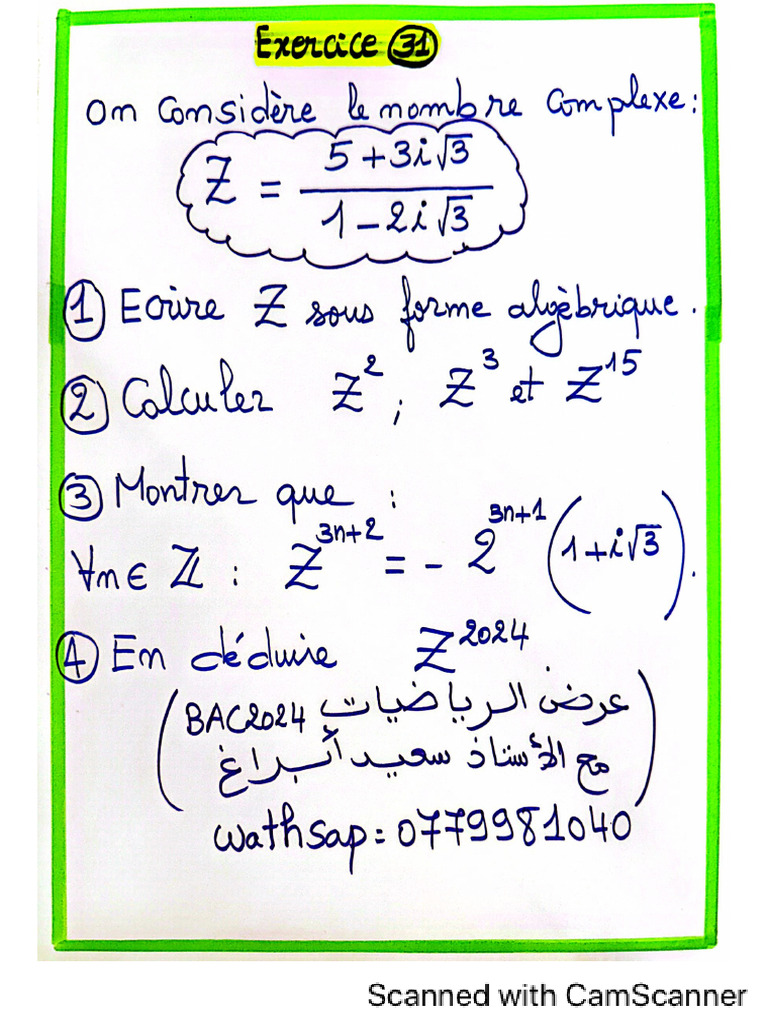 Exercice 31
On Considère le nombre Complexe :
Z = (5+3i√3)/(1-2i√3)
① Ecrire Z sous forme algèbrique.
② Calculer Z² ; Z³ et Z¹⁵
③ Montrer que :
∀n∈ℤ : Z³ⁿ⁺² = - 2³ⁿ⁺¹ (1+i√3).
④ En déduire Z²⁰²⁴
(عرض الرياضيات BAC2024
مع الأستاذ سعيد أبراغ)
wathsap : 0779981040
Scanned with CamScanner